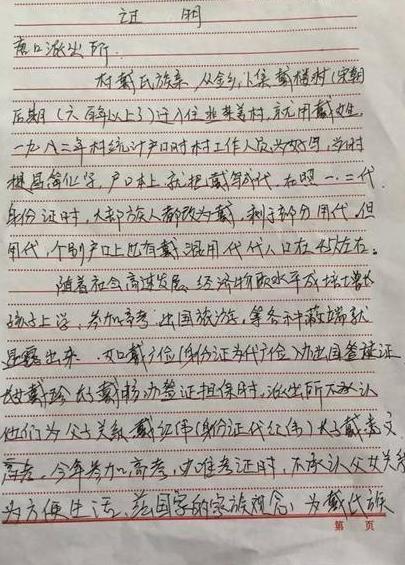 证 明
派出所.
村戴氏族亲 从金乡,卜集戴楼村(宋朝
后期(六百年以上了)迁入住 村,就用戴姓.
一九八二年村统计户口时村工作人员为好写,当时
提昌简化字,户口本上就把戴写成代.在照一.二代
身份证时,大部族人都改为戴,剩于部分用代,但
用代,个别户口上也有戴,混用代代人口在45左右。
随着社会高速发展,经济物质水平成 增长
孩子上学,参加高考,出国旅游,等各种蔽端就
显露出来.如戴广俭(身份证为代广俭)办出国签证
女戴珍 戴 办签证担保时,派出所不承认
他们为父子关系 戴红伟(身份证代红伟)女戴 文
高考,今年参加高考,办准考证时,不承认父女关系
为方便生活,给国家的家族观念,为戴氏族
第 页